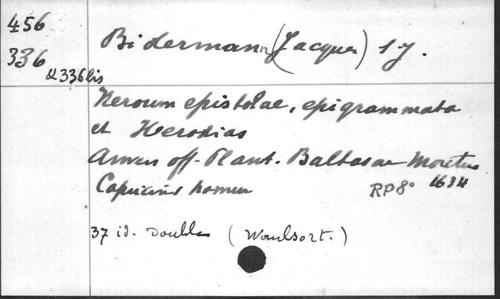 456
336
& 336bis
Bidermann (Jacques) s j.
Heroum epistolae, epigrammata
et Herodias
Anvers off. Plant. Balthasar Moretus
1634
RP8°
37 id. Double (Waulsort.)